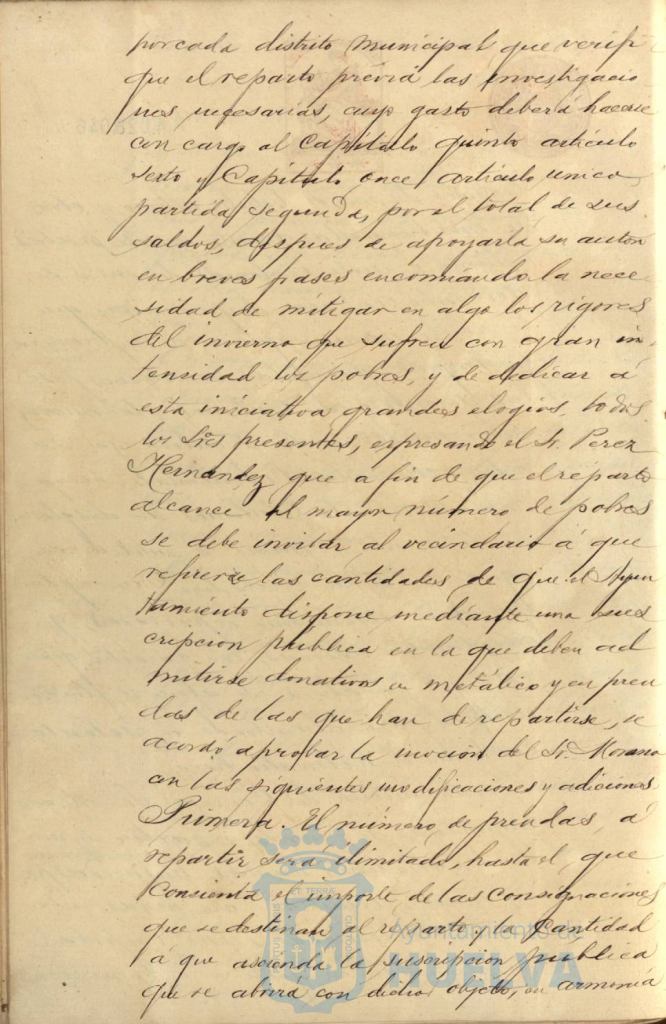 por cada distrito municipal que verifi
que el reparto prévia las investigacio
nes necesarias, cuyo gasto deberá hacerse
con cargo al Capítulo quinto artículo
sexto y Capítulo once artículo unico
partida segunda, por el total de sus
saldos, despues de apoyarla su autor
en breves frases encomiando la nece
sidad de mitigar en algo los rigores
del invierno que sufren con gran in
tensidad los pobres, y de dedicar á
esta iniciativa grandes elogios todos
los Sres presentes, espresando el Sr. Perez
Hernandez que a fin de que el reparto
alcance al mayor número de pobres
se debe invitar al vecindario á que
las cantidades de que el Ayun
tamiento dispone mediante una sus
cripcion publica en la que deben ad
mitirse donativos en metálico y en pren
das de las que han de repartirse, se
acordó aprobar la mocion del Sr. Moreno
con las siguientes modificaciones y adiciones
Primera. El número de prendas á
repartir será ilimitado, hasta el que
consienta el importe de las consignaciones
que se destinan al reparto y la Cantidad
á que ascienda la suscripcion publica
que se abrirá con dicho objeto, en armonia
Ayuntamiento de
HUELVA